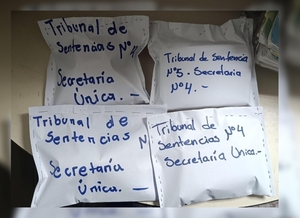 Tribunal de
Sentencias Nº
Secretaría
Única. —
Tribunal de Sentencia
Nº5 - Secretaria
Nº4. —
Tribunal de
Sentencias N
Secretaría
Única. —
Tribunal de Nº4
Sentencias
Secretaría Única.-